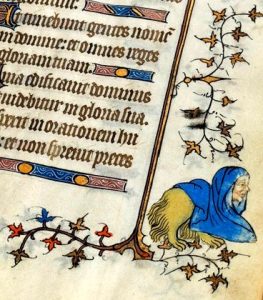 imebunt gentes nom
m domine: et omnes reges
gloriam tuam.
ia edificauit dominus
uidebitur in gloria sua.
pexit in orationem hu
et non spreuit preces